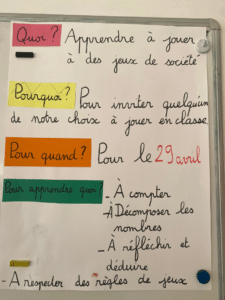 Quoi ? Apprendre à jouer
à des jeux de société
Pourquoi ? Pour inviter quelqu'un
de notre choix à jouer en classe
Pour quand ? Pour le 29 avril
Pour apprendre quoi ? - À compter
- À Décomposer les
nombres
- À réfléchir et
déduire
- A respecter des règles de jeux